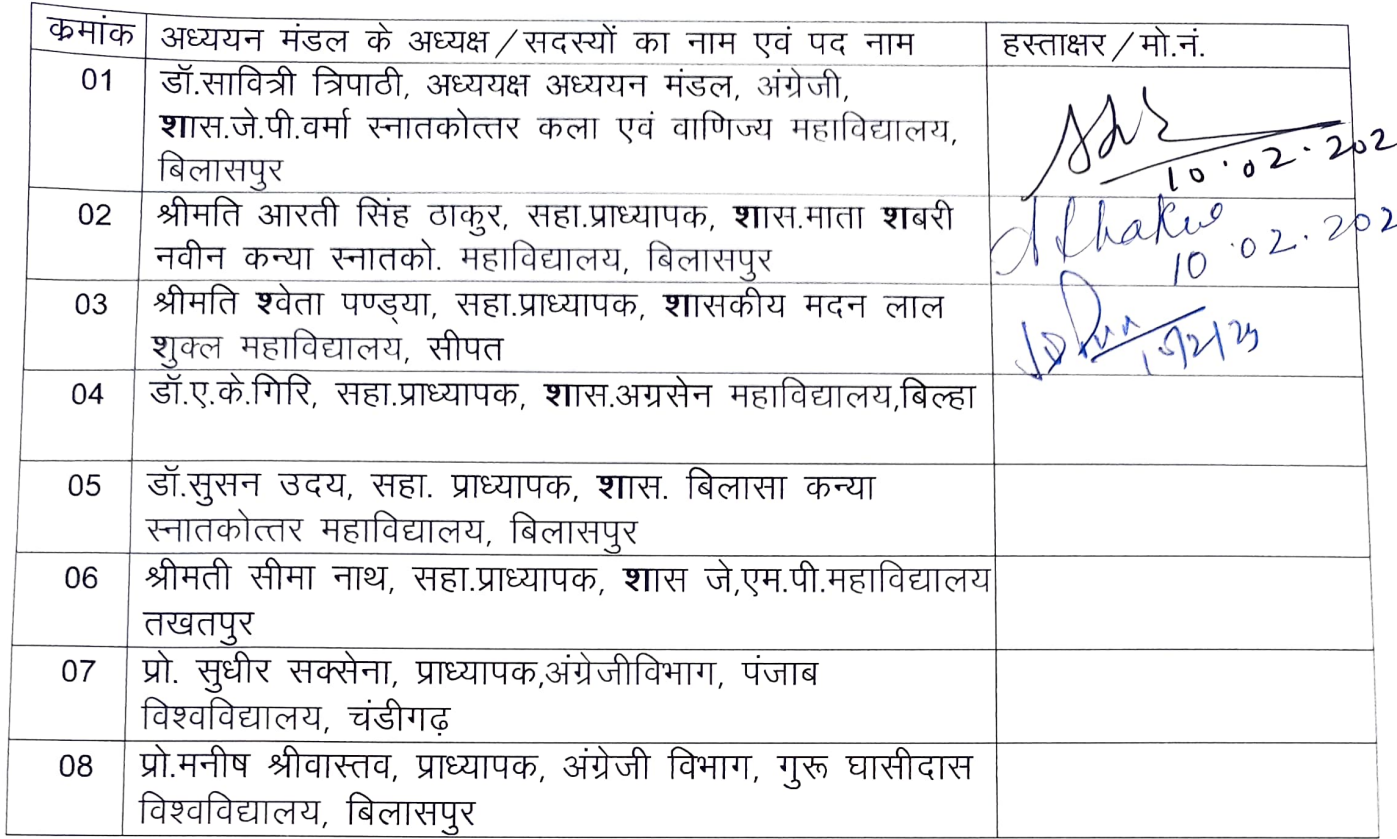 क्रमांक अध्ययन मंडल के अध्यक्ष / सदस्यों का नाम एवं पद नाम हस्ताक्षर / मो.नं.
01 डॉ.सावित्री त्रिपाठी, अध्ययक्ष अध्ययन मंडल, अंग्रेजी,
शास.जे.पी.वर्मा स्नातकोत्तर कला एवं वाणिज्य महाविद्यालय,
बिलासपुर
10.02.202
02 श्रीमति आरती सिंह ठाकुर, सहा.प्राध्यापक, शास.माता शबरी
नवीन कन्या स्नातको. महाविद्यालय, बिलासपुर
10.02.202
03 श्रीमति श्वेता पण्ड्या, सहा.प्राध्यापक, शासकीय मदन लाल
शुक्ल महाविद्यालय, सीपत
04 डॉ.ए.के.गिरि, सहा.प्राध्यापक, शास.अग्रसेन महाविद्यालय,बिल्हा
05 डॉ.सुसन उदय, सहा. प्राध्यापक, शास. बिलासा कन्या
स्नातकोत्तर महाविद्यालय, बिलासपुर
06 श्रीमती सीमा नाथ, सहा.प्राध्यापक, शास जे,एम.पी.महाविद्यालय
तखतपुर
07 प्रो. सुधीर सक्सेना, प्राध्यापक,अंग्रेजीविभाग, पंजाब
विश्वविद्यालय, चंडीगढ़
08 प्रो.मनीष श्रीवास्तव, प्राध्यापक, अंग्रेजी विभाग, गुरू घासीदास
विश्वविद्यालय, बिलासपुर